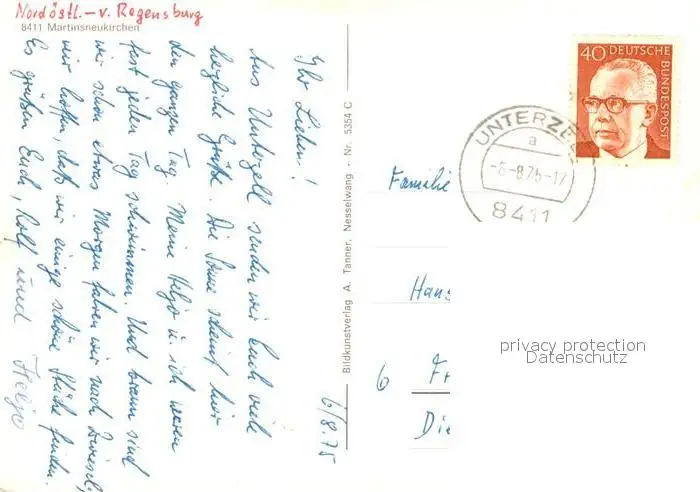 Nordöstl. - v. Regensburg
8411 Martinsneukirchen
6/8.75
Ihr Lieben!
Aus Unterzell senden wir Euch viele
herzliche Grüße. Die Sonne scheint hier
den ganzen Tag. Meine Helga u. ich waren
fast jeden Tag schwimmen. Und braun sind
wir schon etwas. Morgen fahren wir nach Zwiesel,
wir hoffen, daß wir einige schöne Stücke finden.
Es grüßen Euch, Rolf und Helga
Bildkunstverlag A. Tanner, Nesselwang · Nr. 5354 C
40 DEUTSCHE BUNDESPOST
UNTERZELL
a
-6.-8.75-17
8411
Familie
Hans
6 Fr
Die
privacy protection
Datenschutz